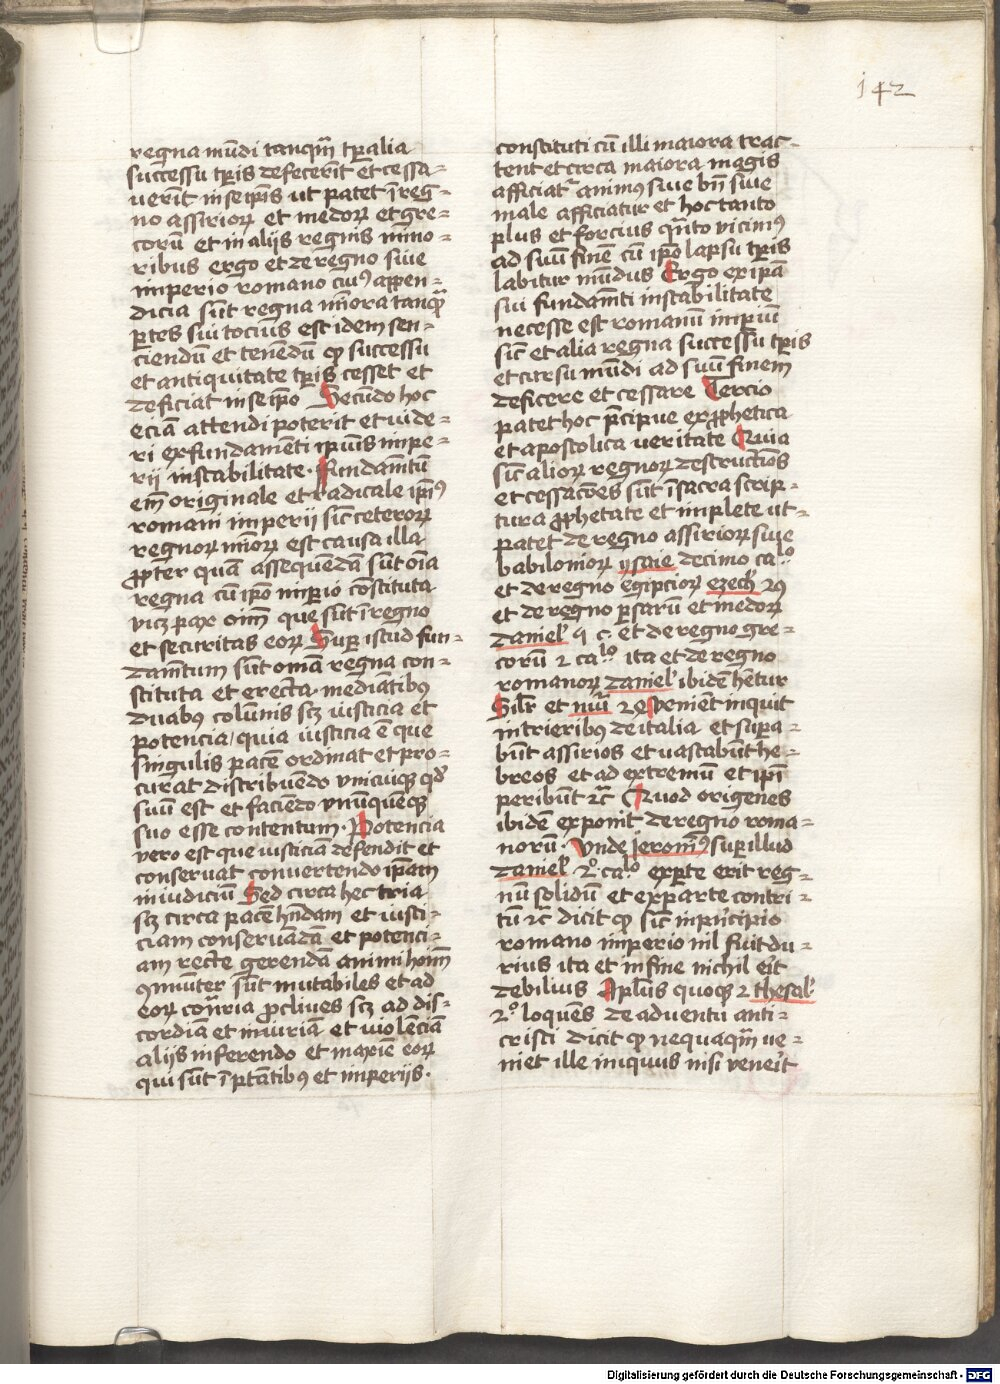 142
regna mūdi tanqm̄ tp̄alia
successu tp̄is defecerīt et cessa=
uerīt in seip̄is ut patet ī reg=
no assirioꝝ et medoꝝ et gre=
corū et in alijs regnis mīno=
ribus ergo et de regno siue
imperio romano cuiꝰ appen=
dicia sūt regna mīora tanqͫ
ꝑtes sui tocius est idem sen=
ciendū et tenēdū ꝙ successu
et antiquitate tp̄is cesset et
deficiat in seip̄o Secūdo hoc
eciā attendi poterit et uide=
ri ex fundamēti ipīus impe=
rii instabilitate · Fundam̄tū
em̄ originale et radicale ip̄iꝰ
romani imperii sic̄ ceteroꝝ
regnoꝝ mīoꝝ est causa illa
ꝓpter quā assequēdā sūt oīa
regna cū ip̄o imꝑio cōstituta
vicꝫ pax oīm que sūt ī regno
et securitas eoꝝ Suꝑ istud fun=
dam̄tum sūt omīa regna con=
stituta et erecta · mediātibꝰ
duabꝰ colūnis scꝫ iusticia et
potencia / quia iusticia ē que
singulis pacē ordinat et pro=
curat distribuēdo vnicuiqꝫ qd̄
suū est et faciēdo vnūquēqꝫ
suo esse contentum · Potencia
vero est que iusticiā defendit et
conseruat convertendo ip̄am
in iudiciū Sed circa hec tria
scꝫ circa pacē hn̄dam et iusti=
ciam conseruādā et potenci=
am recte gerendā animi hoīm
ꝯmuīter sūt mutabiles et ad
eoꝝ cōtraria ꝓclives scꝫ ad dis=
cordiā et iniuriā et violēciā
alijs inferendo et maxīe eoꝝ
qui sūt ī ptātibꝰ et imperijs ·
constituti cū illi maiora trac=
tent et circa maiora magis
afficiat᷑ animꝰ siue bn̄ siue
male afficiatur et hoc tanto
plus et forcius qͣnto vicimꝰ
ad suū finē cū ip̄o lapsu tp̄is
labitur mūdus Ergo ex ip̄a
sui fundam̄ti instabilitate
necesse est romanū imꝑiū
sic̄ et alia regna successu tp̄is
et cursu mūdi ad suū finem
deficere et cessare Tercio
patet hoc p̄cipue ex ꝓphetica
et apostolica veritate Quia
sic̄ alioꝝ regnoꝝ destructiōs
et cessacōes sūt ī sacra scrip=
tura ꝓphetate et implete ut=
patet de regno assirioꝝ siue
babilonioꝝ ysaie decimo caͦ
et de regno egipcioꝝ ezecħ 29
et de regno ꝑsarū et medoꝝ
daniel̕ q c · et de regno gre=
corū 2 caͦ ita et de regno
romanoꝝ daniel̕ ibidē hētur
Silr̄ et nūi 24 venīet inquit
in trieribꝰ de italia et suꝑa=
būt assirios et uastabūt he=
breos et ad extremū et ip̄i
peribūt ⁊c̄ Quod origenes
ibidē exponit de regno roma=
norū · Vnde jeronīꝰ suꝑ illud
daniel̕ 2ͦ caͦ ex ꝑte erit reg=
nū solidū et ex parte contri=
tū ⁊c̄ dicit ꝙ sic̄ in pͥncipio
romano imperio nil fuit du=
rius ita et in fine nichil eīt
debilius Apl̄us quoqꝫ 2 thesal̕
2ͦ loquēs de aduentu anti=
cristi dicit ꝙ nequaqm̄ ve=
niet ille iniquus nisi veneīt
Digitalisierung gefördert durch die Deutsche Forschungsgemeinschaft - DFG